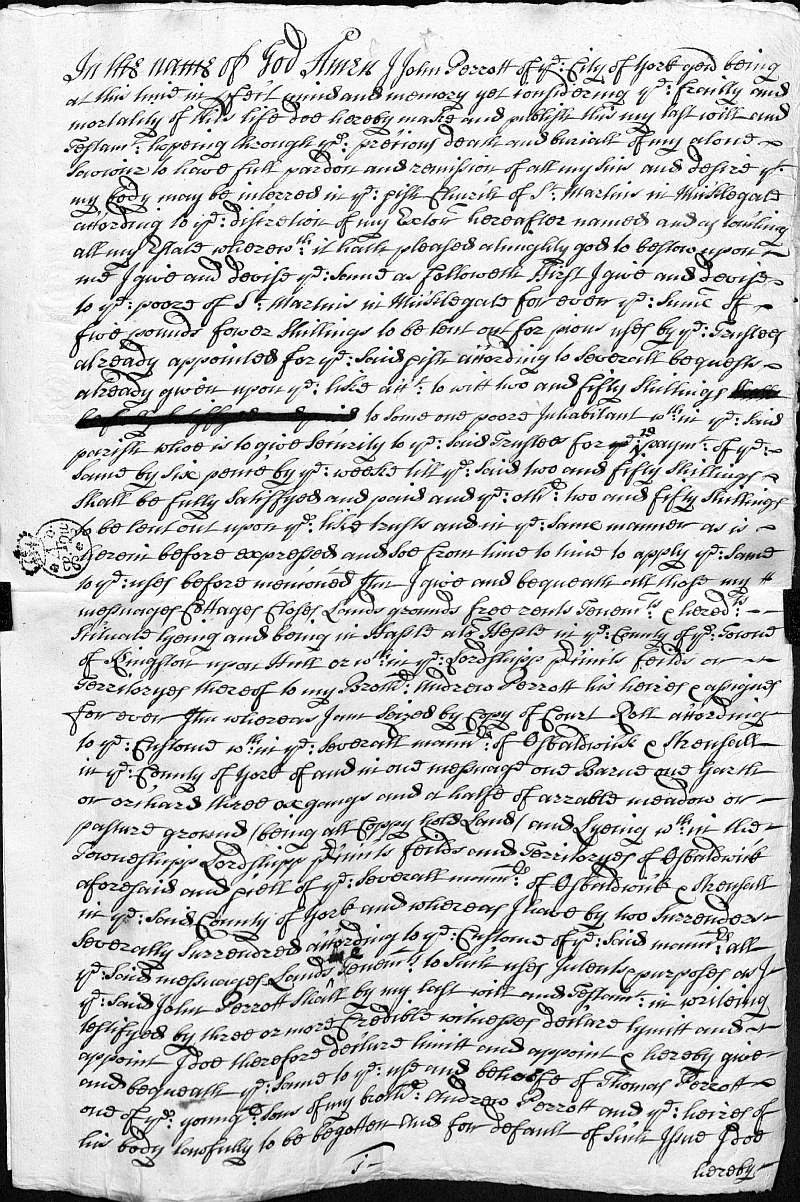 In the name of God Amen I John Perrott of ye: City of York gent being
at this time in pfect mind and memory yet considering ye: frailty and
mortality of this life doe hereby make and publish this my last will and
Testamt: hopeing through ye: precious death and buriall of my alone
Saviour to have full pardon and remission of all my sins and desire yt:
my body may be interred in ye: pish Church of St: Martins in Micklegate
according to ye: discretion of my Exctor: hereafter named and as touching
all my Estate wherewth: it hath pleased almighty god to bestow upon
me I give and devise ye: same as followeth First I give and devise
to ye: poore of St: Martins in Micklegate for ever ye: sume of
five pounds fower shillings to be lent out for pious uses by ye: Trustees
already appointed for ye: said pish according to severall bequests
already given upon ye: like acct: to witt two and fifty shillings
to some one poore Inhabitant wth:in ye: said
parish whoe is to give security to ye: said Trustees for ye: paymt: of ye:
same by six pence by ye: weeke till ye: said two and fifty shillings
shall be fully satisfyed and paid and ye: othr: two and fifty shillings
to be lent out upon ye: like trusts and in ye: same manner as is
herein before expressed and soe from time to time to apply ye: same
to ye: uses before menconed Itm I give and bequeath all those my
messuages Cottages Closes Lands grounds free rents Tenemts: & heredts:
Scituate lyeing and being in Hasle als Hesle in ye: County of ye: Towne
of Kingston upon Hull or wth:in ye: Lordshipp precincts feilds or
Territoryes thereof to my Brothr: Andrew Perrott his heires & assignes
for ever Itm whereas I am seized by Copy of Court Roll according
to ye: Custome wth:in ye: severall mannrs: of Osbaldwick & Strensall
in ye: County of York of and in one messuage one Barne one Garth
or orchard three oxgangs and a halfe of arrable meadow or
pasture ground (being all Coppy hold Land) and Lyeing wth:in the
Towneshipp Lordshipp precincts feilds and Territoryes of Osbaldwick
aforesaid and pcell of ye: severall mannrs: of Osbaldwick & Strensall
in ye: said County of York and whereas I have by two Surrenders
severally surrendred according to ye: Custome of ye: said mannrs: all
ye: said messuages Lands Tenemts: to such uses Intents & purposes as I
ye: said John Perrott shall by my last will and Testamt: in writeing
testifyed by three or more Credible witnesses declare lymitt and
appoint I doe therefore declare limitt and appoint & hereby give
and bequeath ye: same to ye: use and behoofe of Thomas Perrott
one of ye: youngr: sons of my brothr: Andrew Perrott and ye: heires of
his body lawfully to be begotten and for default of such Issue I doe
hereby